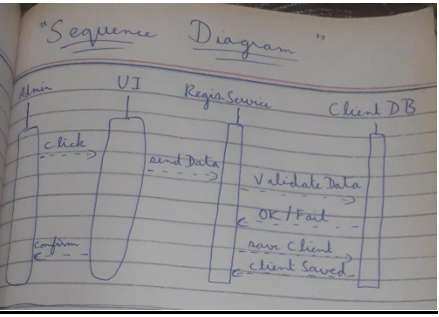 "Sequence Diagram"
Admin UI Regis.Service Client DB
click
send Data
Validate Data
OK/Fail
confirm save Client
Client Saved